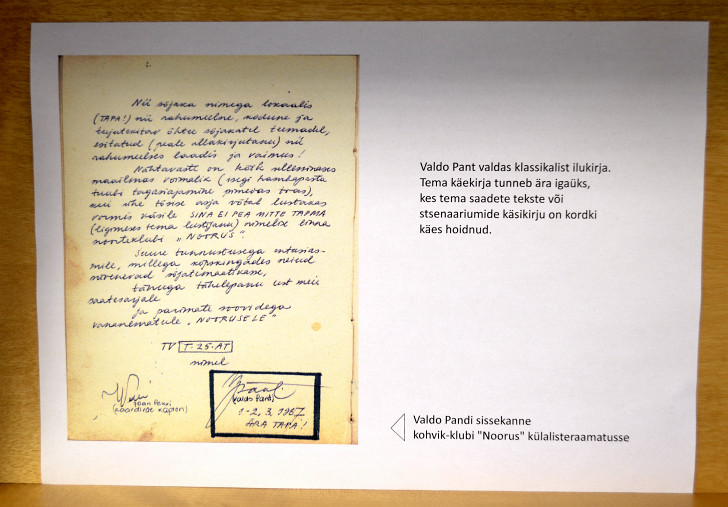 2.
Nii sõjaka nimega lokaalis
(TAPA!) nii rahumeelne, kodune ja
õhtu sõjakatel teemadel,
esitatud (peale allakirjutanu) nii
rahumeelses laadis ja vaimus!
Nähtavasti on kõik selleski
maailmas võimalik (isegi hambapasta
tuubi tagasiajamine pimevas toas),
kui ühe tõsise asja võtab lustakas
vormis käsile SINA EI PEA MITTE TAPMA
(ligimeses tema lustijanu) nimelise linna
noorteklubi „NOORUS".
Suure tunnustusega entusias-
mile, millega kõpskingades neiud
sõjatemaatikasse,
tänuga tähelepanu eest meie
saatesarjale
ja parimate soovidega
vananematule „NOORUSELE"
TV T-25-AT
nimel
(Valdo Pant)
1-2. 3. 1967
ÄRA TAPA!
Valdo Pant valdas klassikalist ilukirja.
Tema käekirja tunneb ära igaüks,
kes tema saadete tekste või
stsenaariumide käsikirju on kordki
käes hoidnud.
Valdo Pandi sissekanne
kohvik-klubi "Noorus" külalisteraamatusse